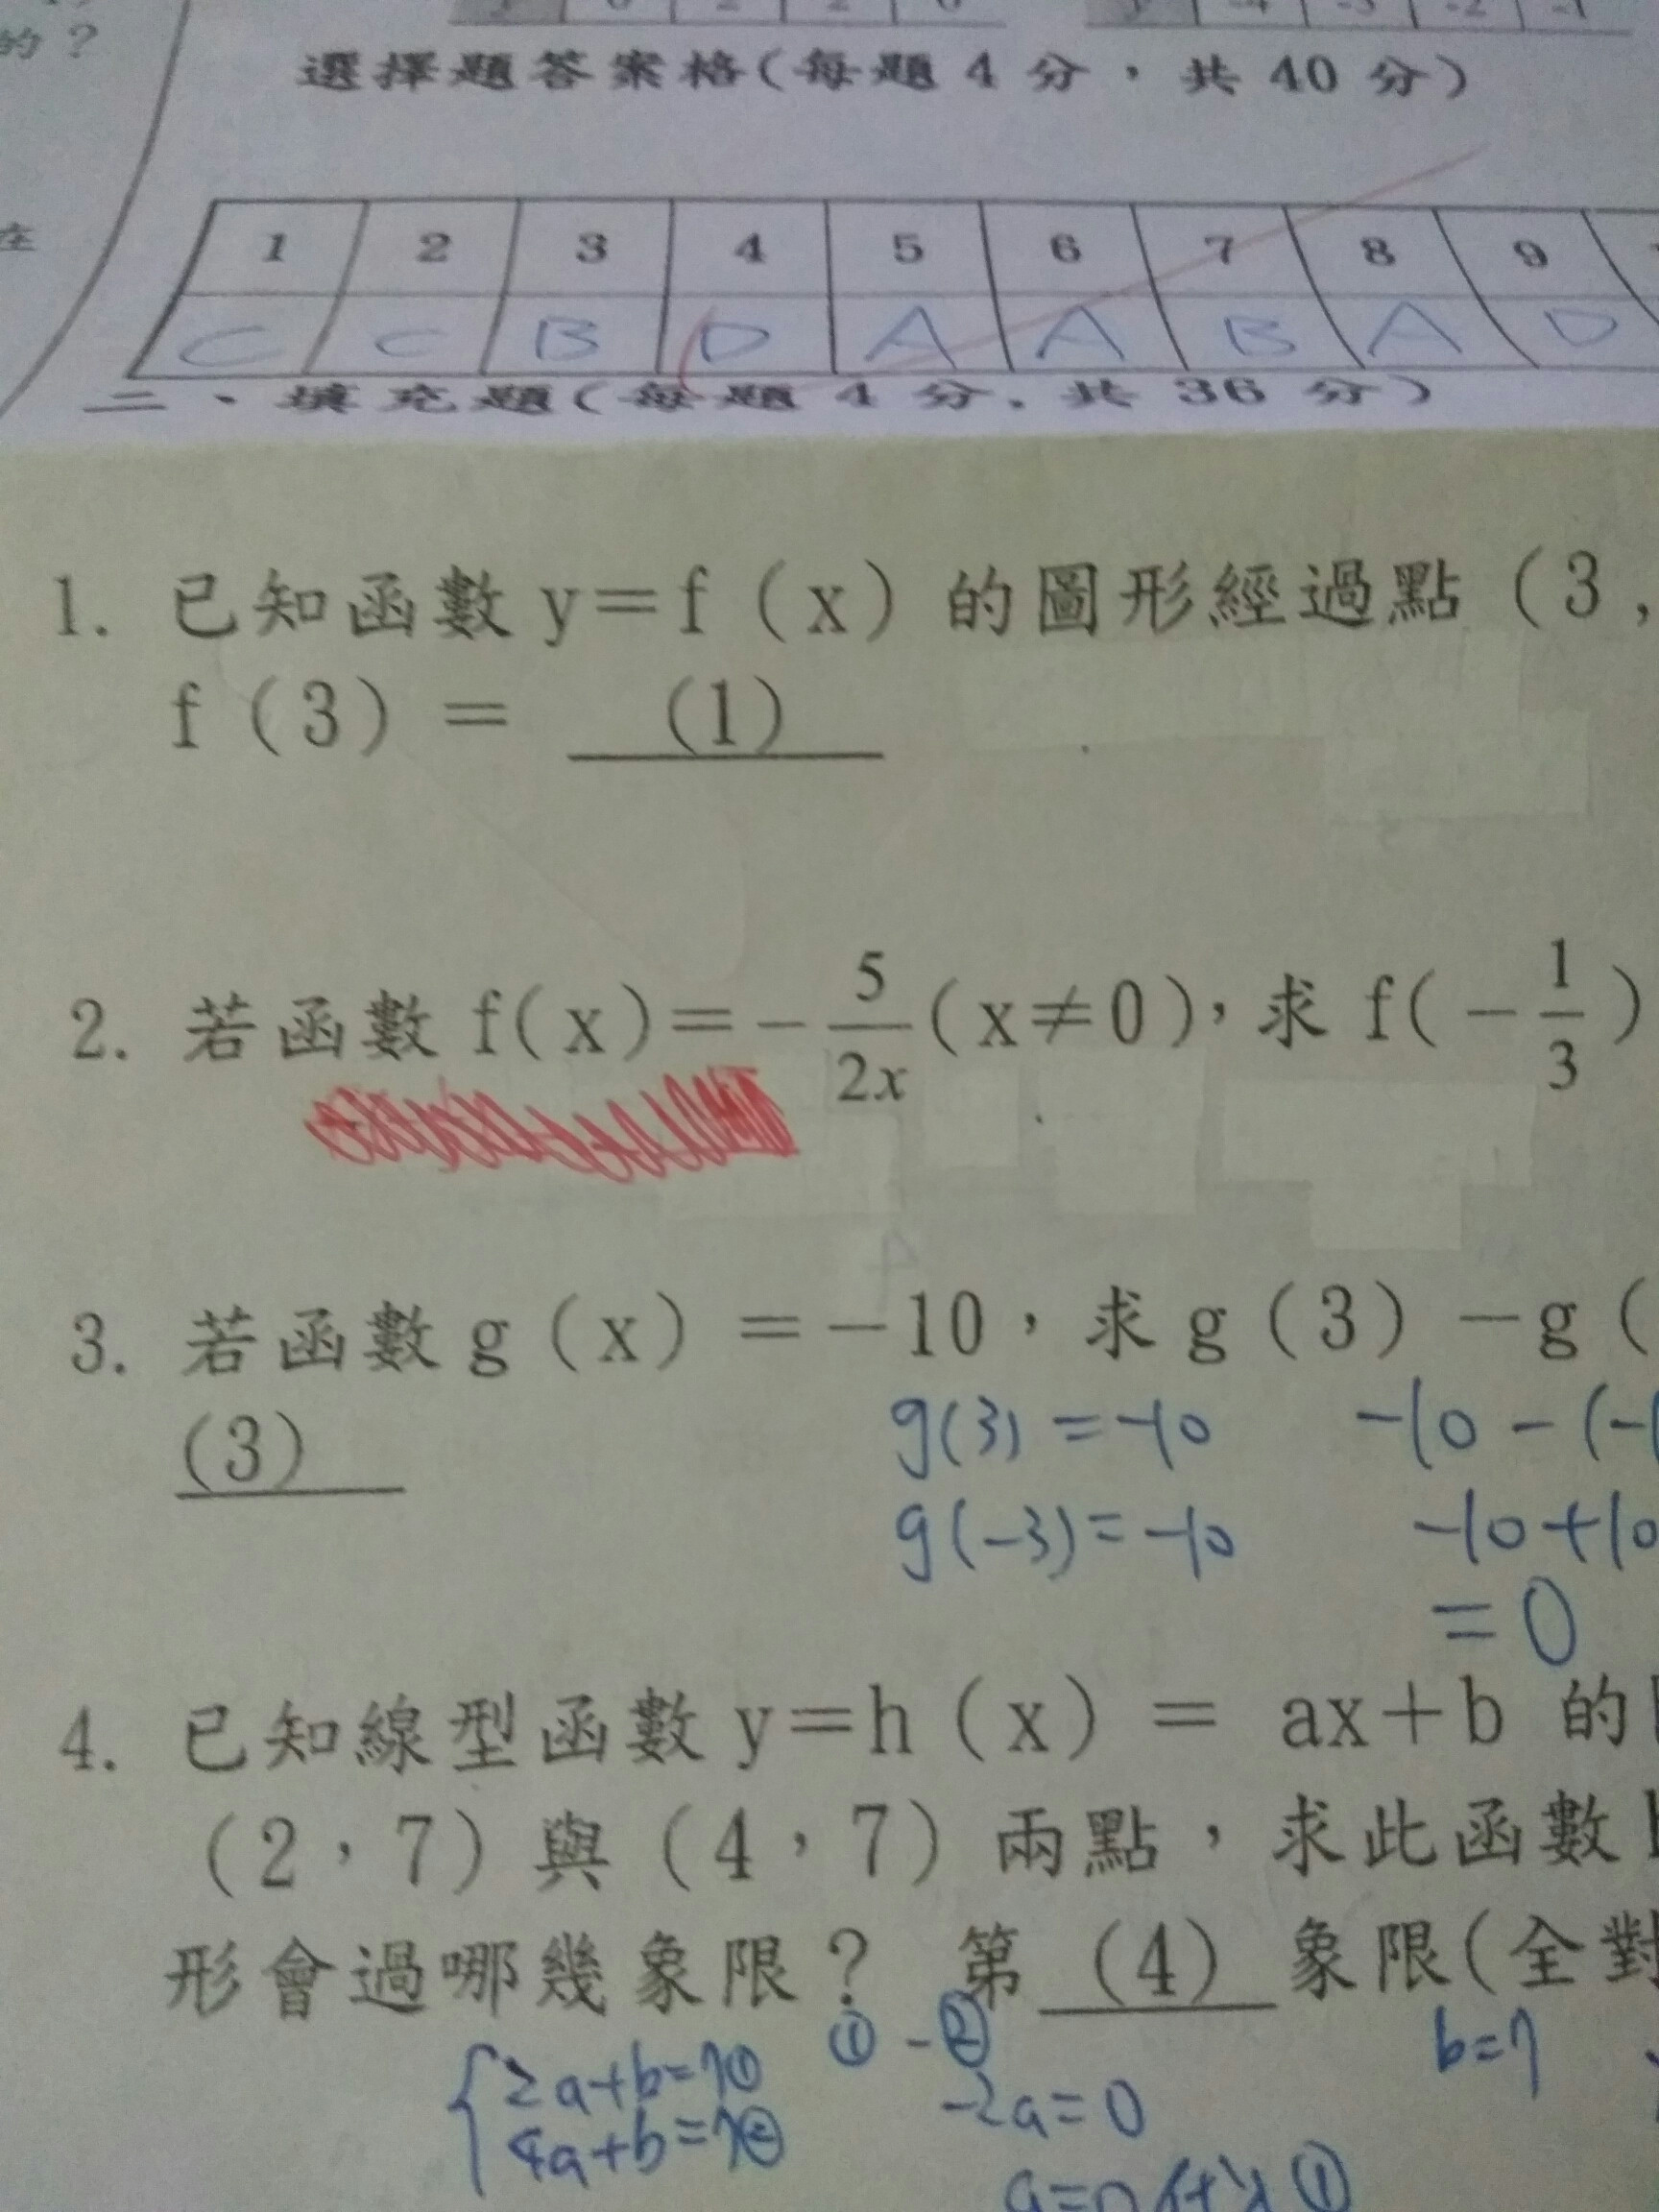 的？
選擇題答案格(每題 4 分，共 40 分)
1 2 3 4 5 6 7 8 9
C C B D A A B A D
二、填充題(每題 4 分，共 36 分)
1. 已知函數 y＝f（x）的圖形經過點（3，
f（3）＝ (1)
2. 若函數 f(x)＝－5/2x(x≠0)，求 f(－1/3)
3. 若函數 g（x）＝－10，求 g（3）－g（
(3)
g(3)=-10 -10-(-1
g(-3)=-10 -10+10
=0
4. 已知線型函數 y＝h（x）＝ ax＋b 的
（2，7）與（4，7）兩點，求此函數
形會過哪幾象限？ 第 (4) 象限(全對
2a+b=7① ①-② b=7
4a+b=7② -2a=0
a=0代入①